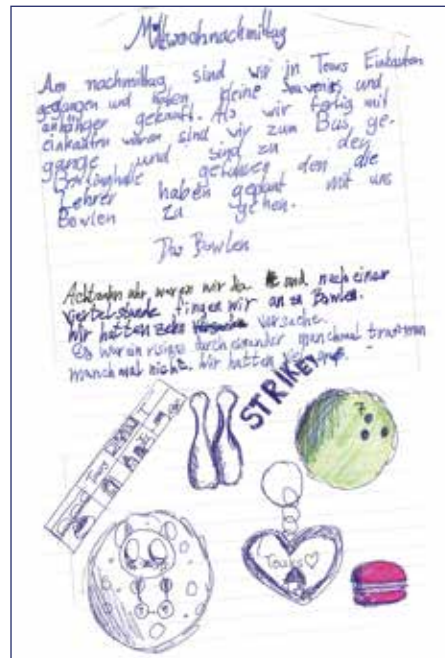 Mittwochnachmittag
Am nachmittag sind wir in Tours Einkaufen
gegangen und haben kleine Souvenirs und
anhänger gekauft. Als wir fertig mit
einkaufen waren sind wir zum Bus ge-
gange und sind zu der
Bowlinghalle gefahren den die
Lehrer haben geplant mit uns
Bowlen zu gehen.
Das Bowlen
Achtzehn uhr waren wir da und nach einer
viertelstunde fingen wir an zu Bowlen.
Wir hatten zehn versuche.
Es war ein risiges durch einander manchmal traf man
manchmal nicht. Wir hatten viel
STRIKE!
Tours
Tours